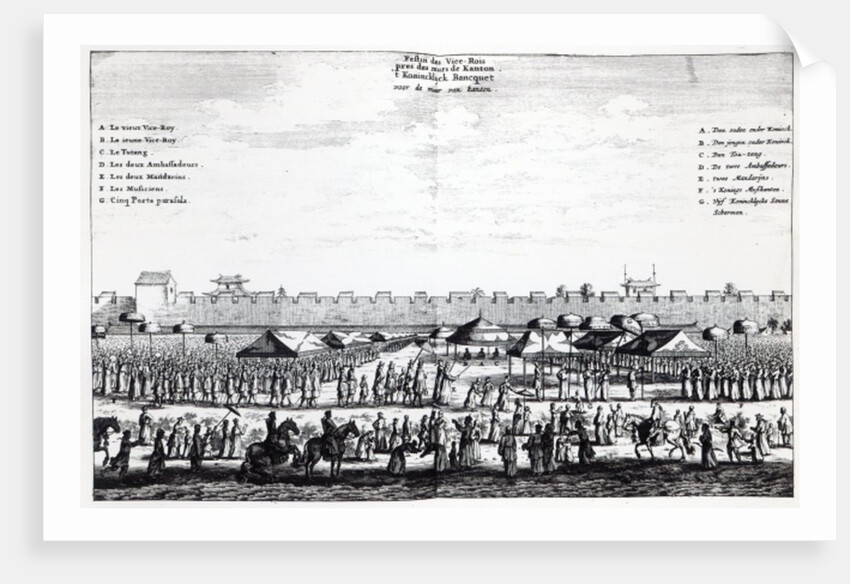 Festin des Vice-Rois
pres des murs de Kanton
't Konincklijck Bancquet
voor de muer van Kanton.
A. Le vieux Vice-Roy.
B. Le ieune Vice-Roy.
C. Le Tutang.
D. Les deux Ambassadeurs.
E. Les deux Mandarins.
F. Les Musiciens.
G. Cinq Porte parasols.
A. Den ouden onder Koninck.
B. Den jongen onder Koninck.
C. Den Tou-tang.
D. De twee Ambassadeurs.
E. twee Mandarijns.
F. 's Konings Musikanten.
G. Vijf Konincklijcke Sonne
Schermen.